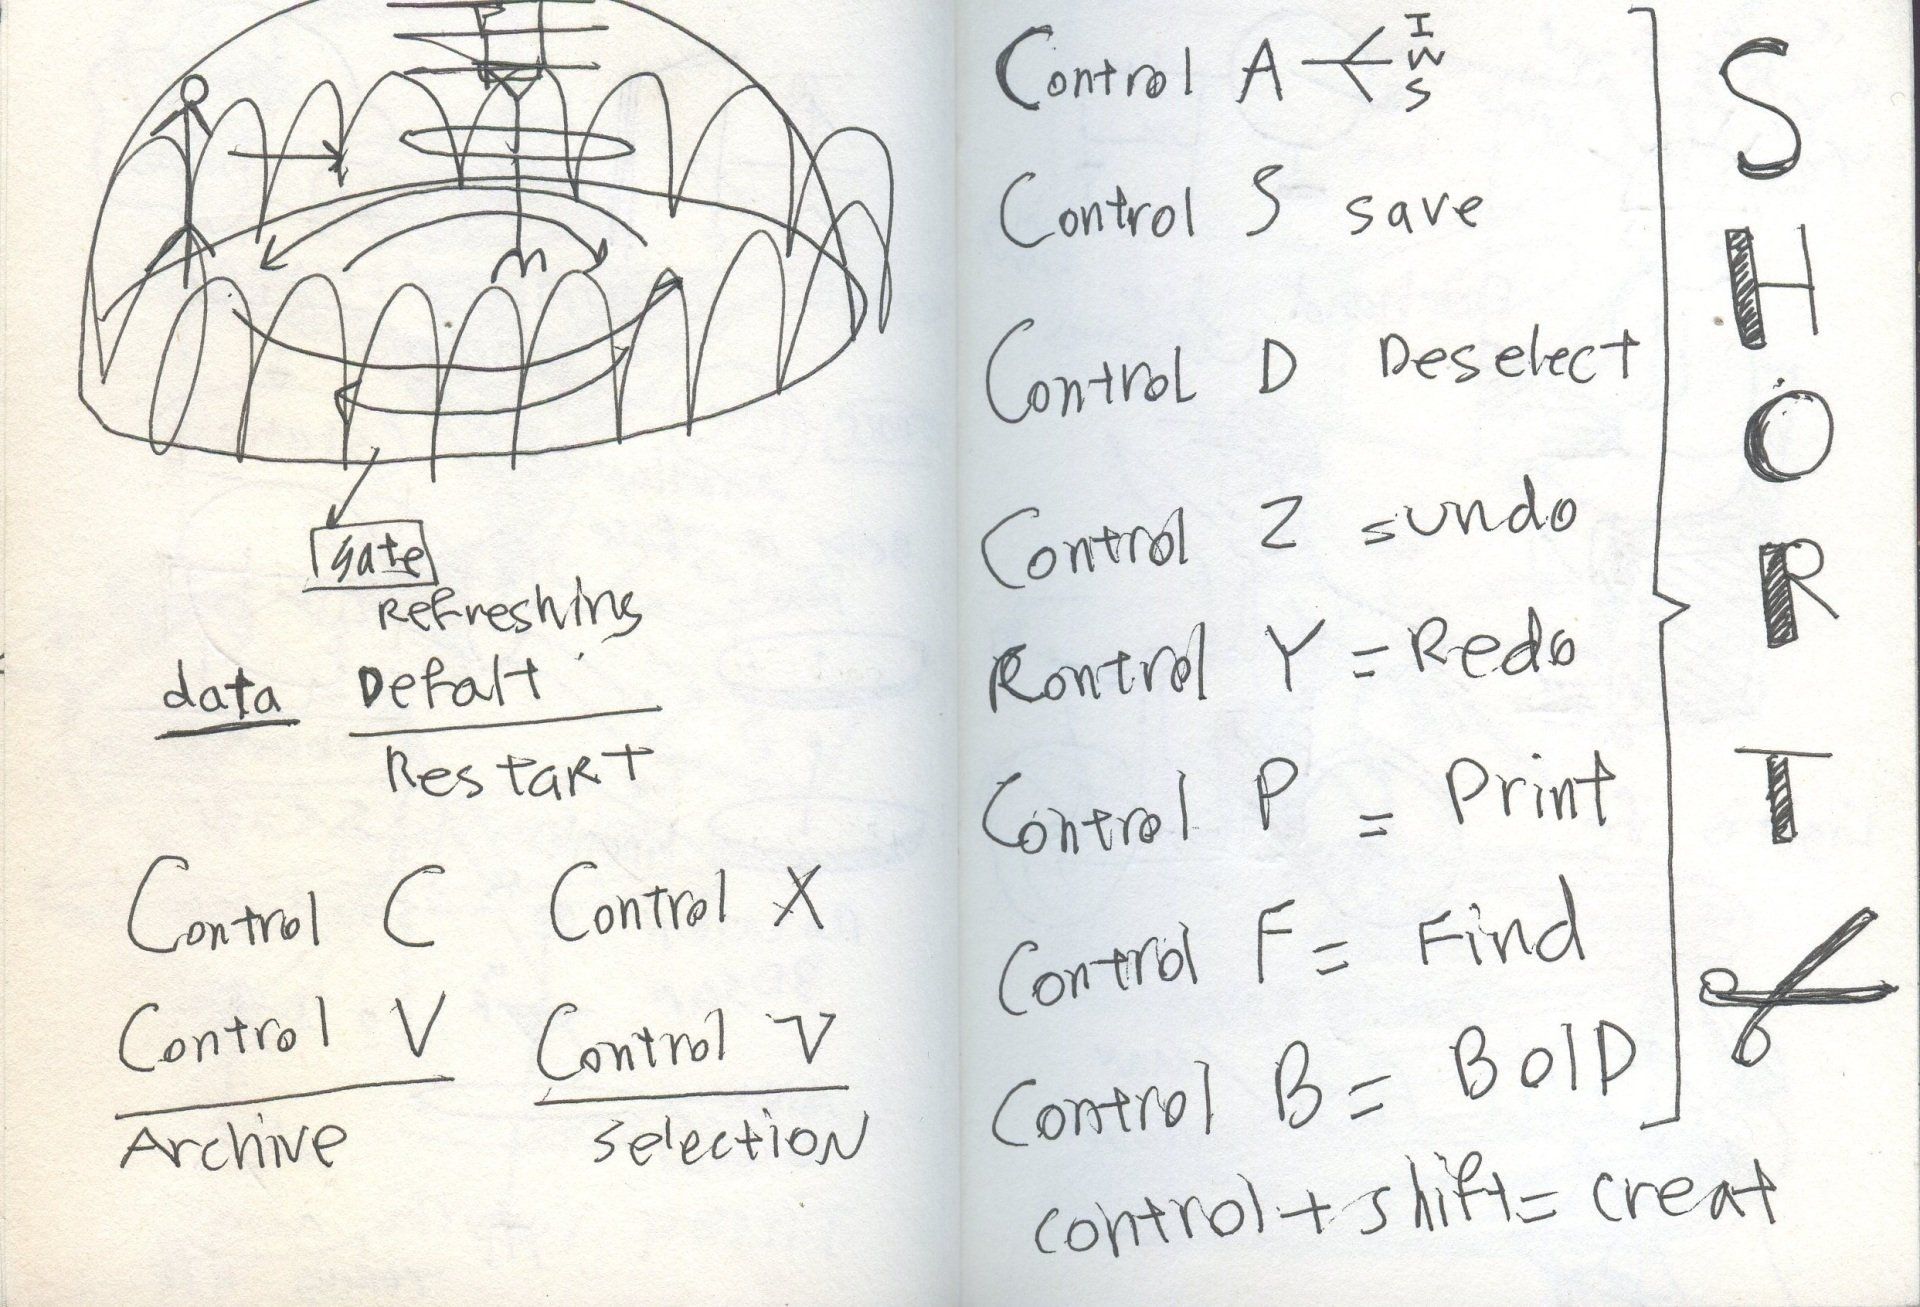 gate
Refreshing
data Defalt
Restart
Control C Control X
Control V Control V
Archive Selection
Control A I
W
S
Control S save
Control D Deselect
Control Z = undo
Kontrol Y = Redo
Control P = Print
Control F = Find
Control B = BolD
control + shift = creat
SHORT